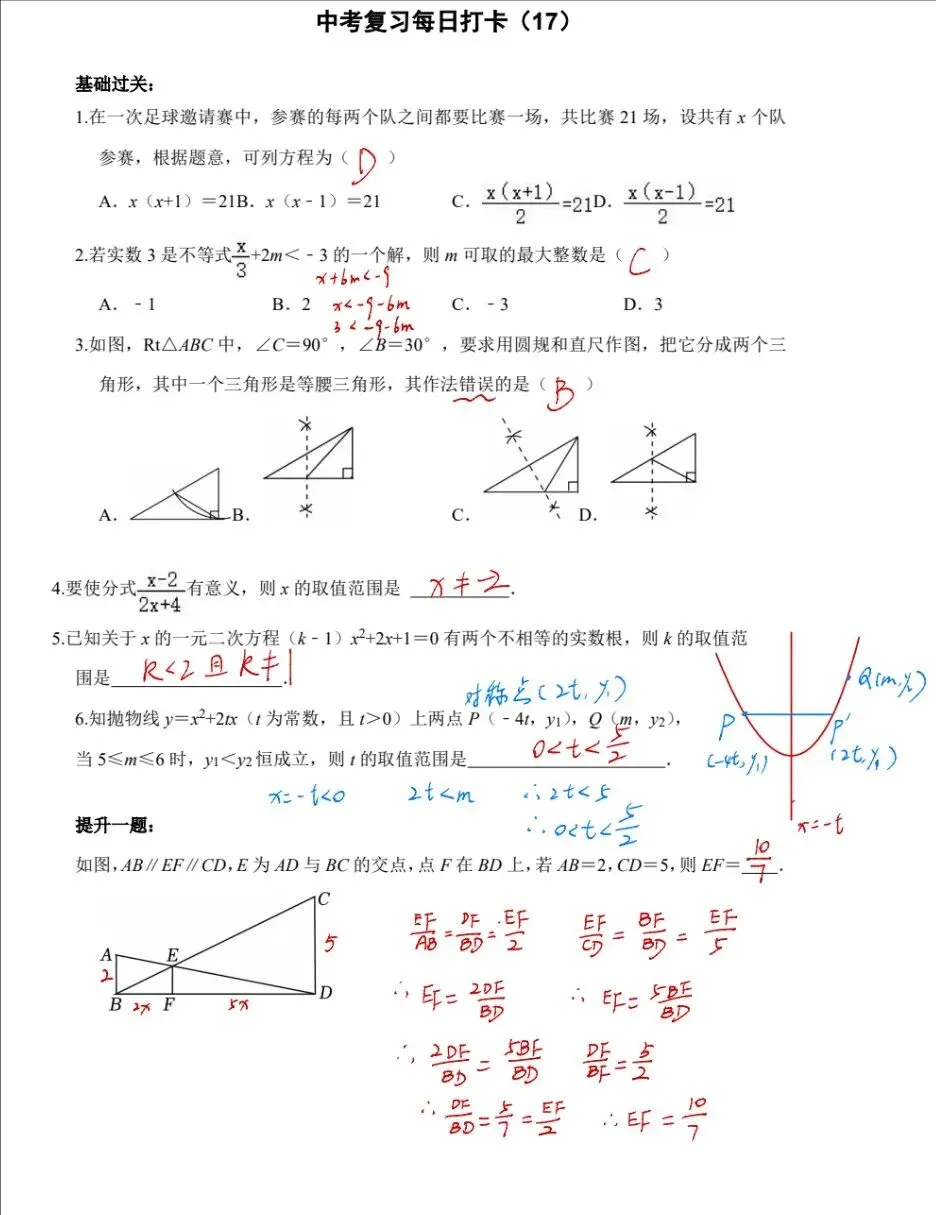 中考复习每日打卡(17)
基础过关:
1.在一次足球邀请赛中,参赛的每两个队之间都要比赛一场,共比赛 21 场,设共有 x 个队
参赛,根据题意,可列方程为( D )
A. x(x+1)=21B. x(x﹣1)=21 C. x(x+1)/2=21D. x(x-1)/2=21
2.若实数 3 是不等式x/3+2m<﹣3 的一个解,则 m 可取的最大整数是( C )
x+6m<-9
A.﹣1 B. 2 x<-9-6m C.﹣3 D. 3
3<-9-6m
3.如图,Rt△ABC 中,∠C=90°,∠B=30°,要求用圆规和直尺作图,把它分成两个三
角形,其中一个三角形是等腰三角形,其作法错误的是( B )
A. B. C. D.
4.要使分式x-2/2x+4有意义,则 x 的取值范围是 x≠-2.
5.已知关于 x 的一元二次方程(k﹣1)x²+2x+1=0 有两个不相等的实数根,则 k 的取值范
围是 k<2且k≠1.
对称点(2t,y₁)
6.知抛物线 y=x²+2tx(t 为常数,且 t>0)上两点 P(﹣4t,y₁),Q(m,y₂),
当 5≤m≤6 时,y₁<y₂恒成立,则 t 的取值范围是 0<t<5/2.
x=-t<0 2t<m ∴2t<5
∴0<t<5/2
Q(m,y₂)
P P'
(-4t,y₁) (2t,y₁)
x=-t
提升一题:
如图,AB∥EF∥CD,E 为 AD 与 BC 的交点,点 F 在 BD 上,若 AB=2,CD=5,则 EF= 10/7.
C
A E 5
2
B 2x F 5x D
EF/AB=DF/BD=EF/2 EF/CD=BF/BD=EF/5
∴EF=2DF/BD ∴EF=5BF/BD
∴2DF/BD=5BF/BD DF/BF=5/2
∴DF/BD=5/7=EF/2 ∴EF=10/7